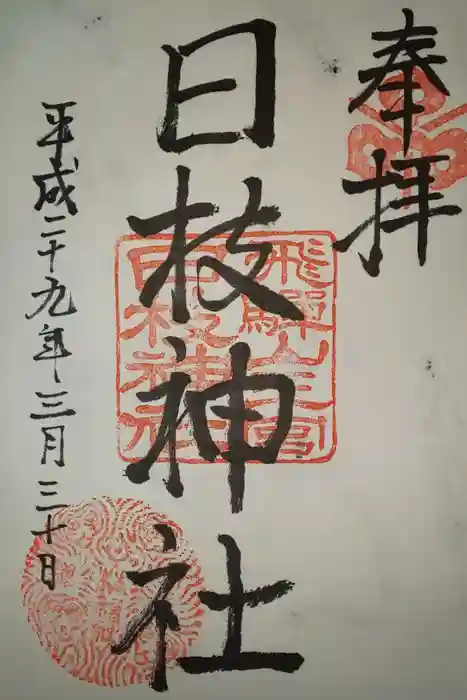 奉拝
日枝神社
飛騨山王宮
日枝神社
平成二十九年三月三十日